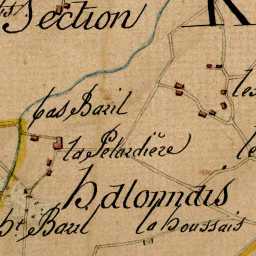 Section
bas Baril
la Pelardiere
halonnais
ht Baril
la houssais